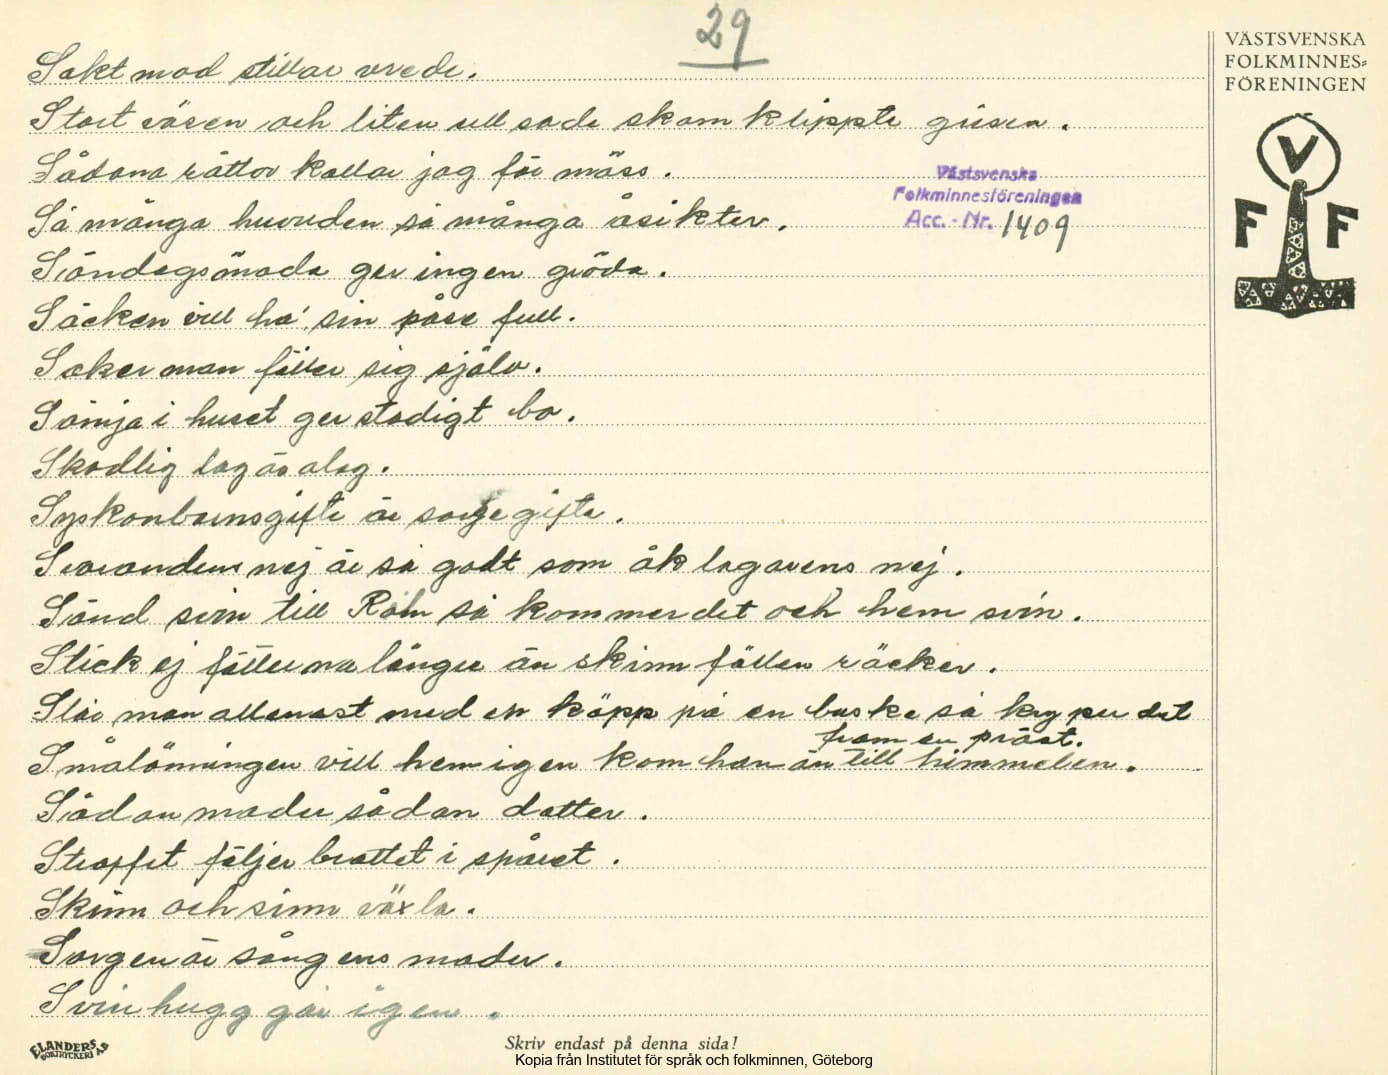 29
VÄSTSVENSKA
FOLKMINNES=
FÖRENINGEN
V
F F
Västsvenska
Folkminnesföreningen
Acc. - Nr. 1409
Sakt mod stillar vrede.
Stort väsen och liten ull sade skam klippte grisen.
Sådana rättor kallar jag för möss.
Så många huvuden så många åsikter.
Söndagsmöda ger ingen gröda.
Säcken vill ha' sin påse full.
Saker man fäller sig själv.
Sämja i huset ger stadigt bo.
Skadlig lag är olag.
Syskonbarnsgifte är sorgegifte.
Svarandens nej är så godt som åklagarens nej.
Sänd svin till Rom så kommer det och hem svin.
Stick ej fötterna längre än skinnfällen räcker.
Slår man allenast med en käpp på en buske så kryper det
fram en präst.
Smålänningen vill hem igen kom han än till himmelen.
Sådan moder sådan dotter.
Straffet följer brottet i spåret.
Skinn och sinn växla.
Sorgen är sångens moder.
Svinhugg går igen.
ELANDERS
BOKTRYCKERI A.B
Skriv endast på denna sida!
Kopia från Institutet för språk och folkminnen, Göteborg